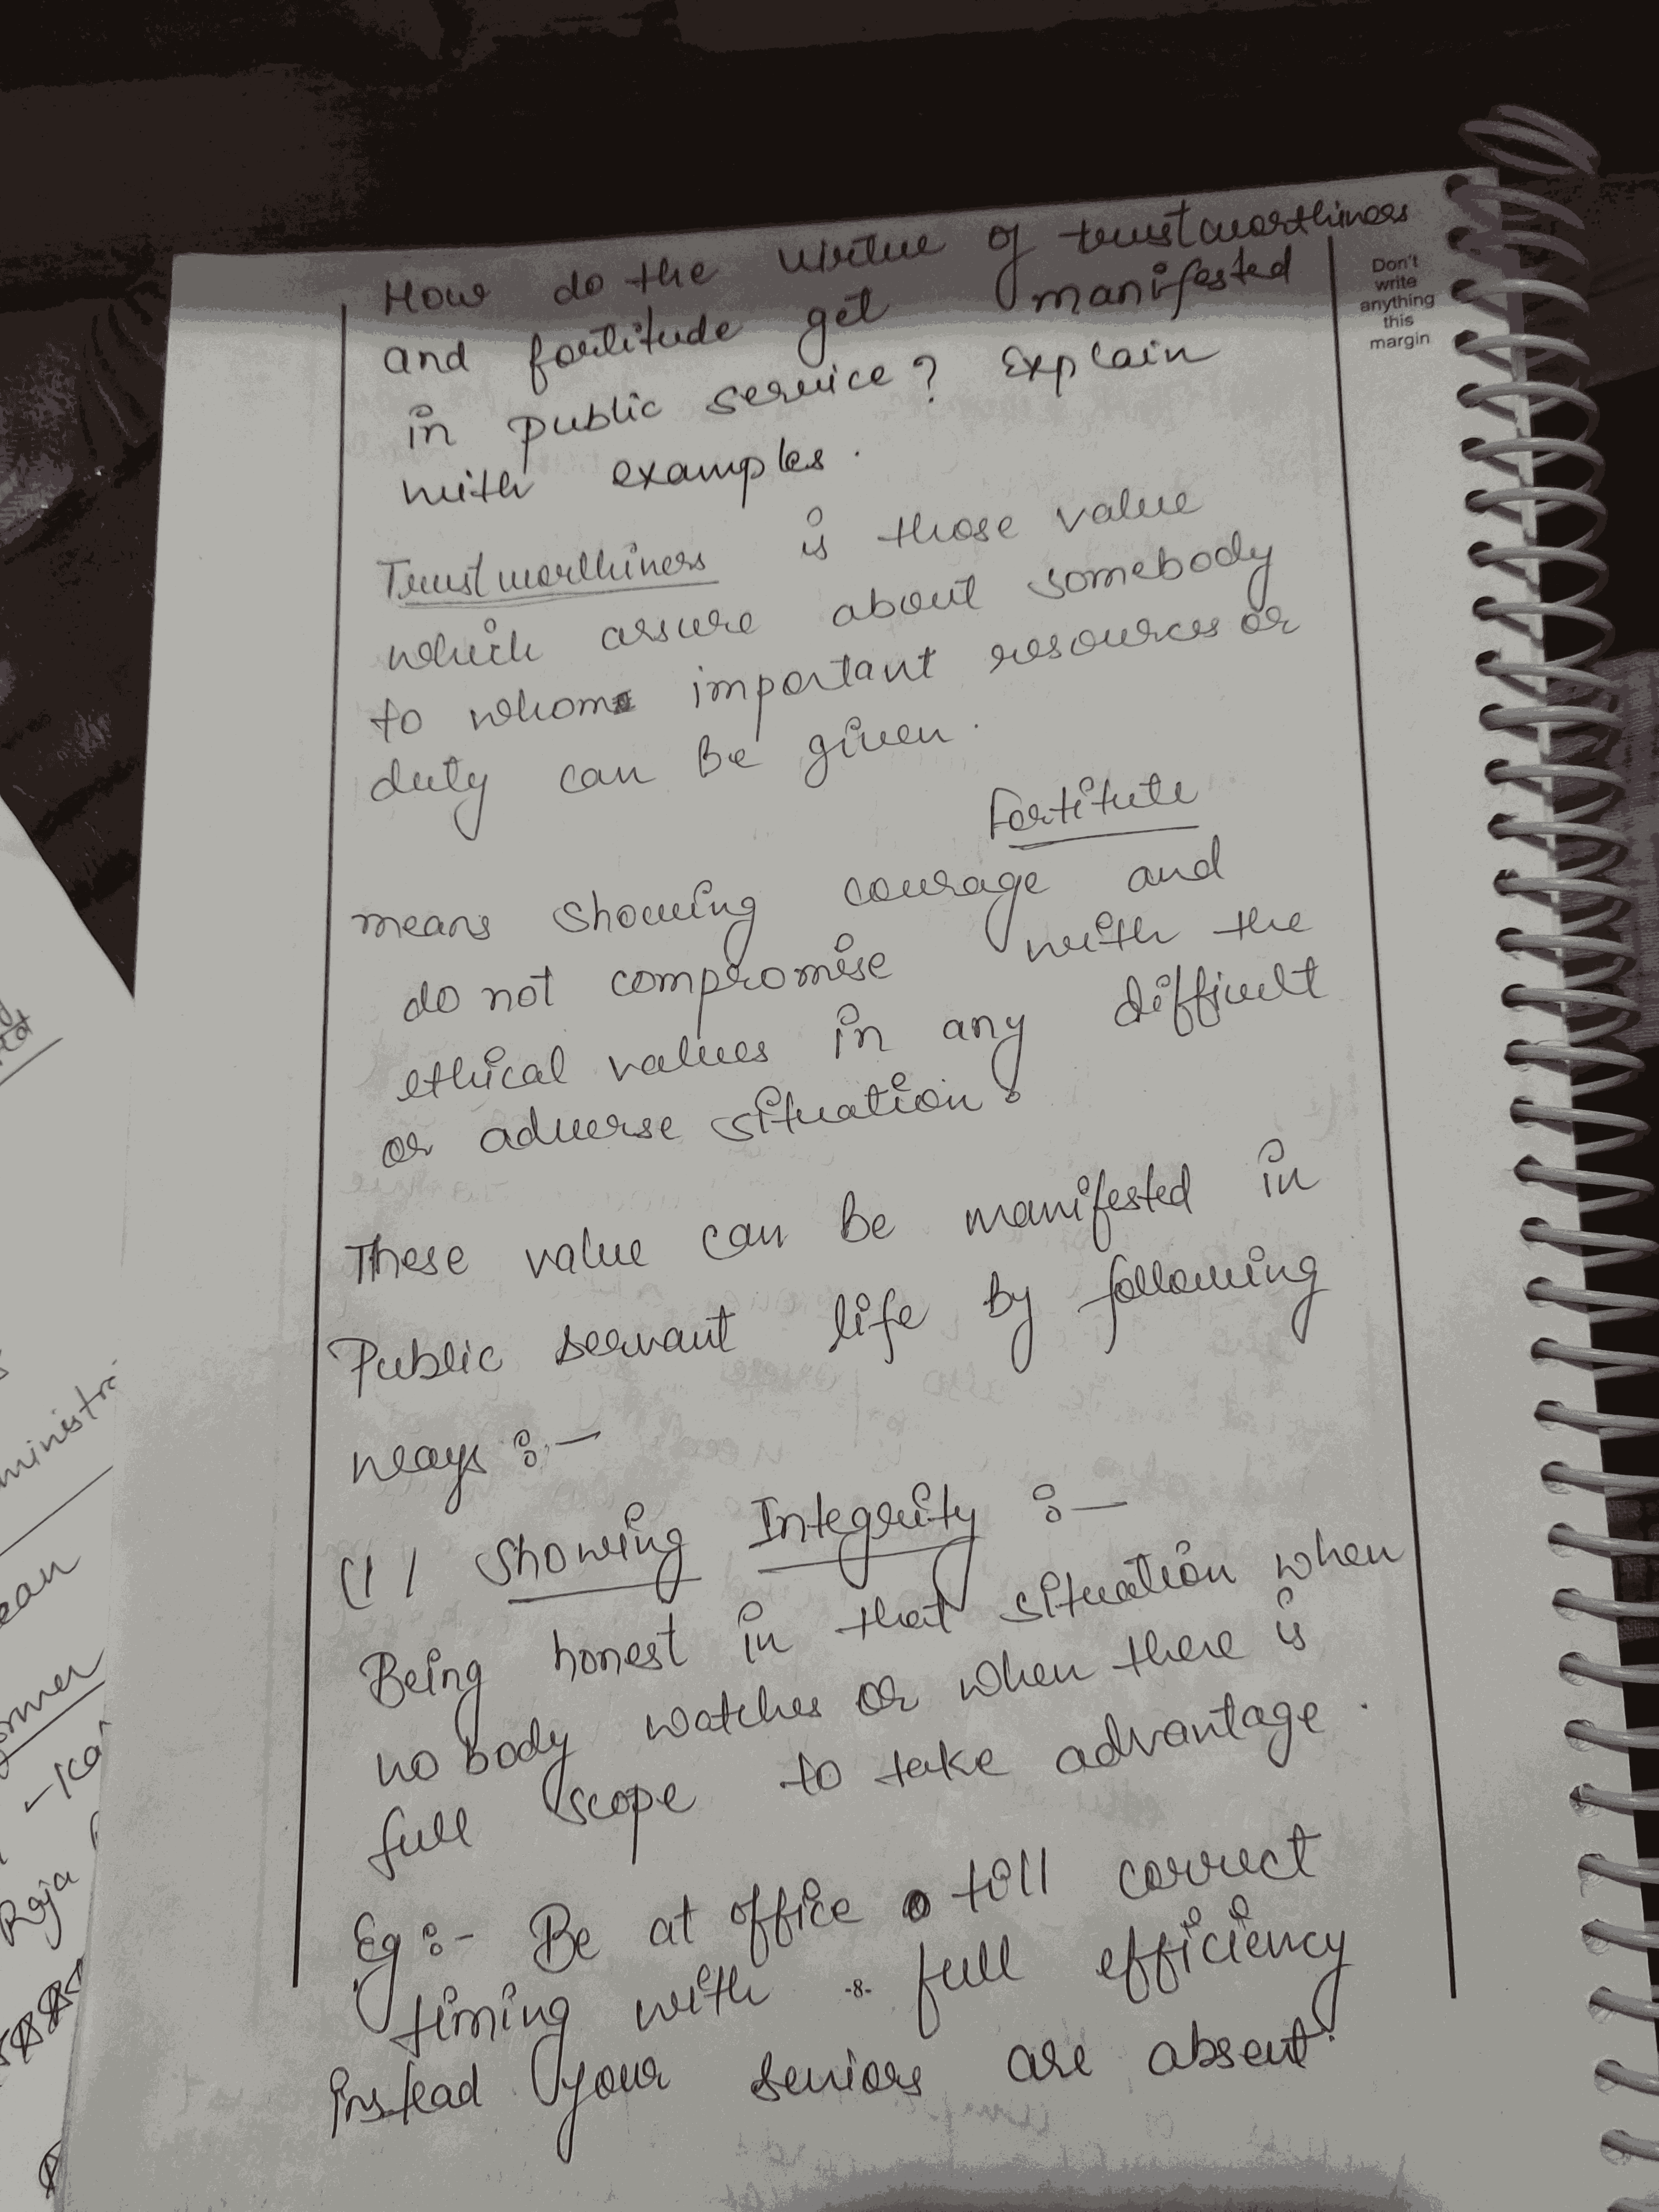 How do the virtue of trustworthiness
and fortitude get manifested
in public service? Explain
with examples.
Don't
write
anything
this
margin
Trustworthiness is those value
which assure about somebody
to whom important resources or
duty can be given.
Fortitute
means showing courage and
do not compromise with the
ethical values in any difficult
or adverse situation.
These value can be manifested in
Public servant life by following
ways :-
(1) Showing Integrity :-
Being honest in that situation when
no body watches or when there is
full scope to take advantage.
Eg :- Be at office till correct
timing with full efficiency
-8-
instead your seniors are absent.
ministr
ean
ormer
-Ka
Raja